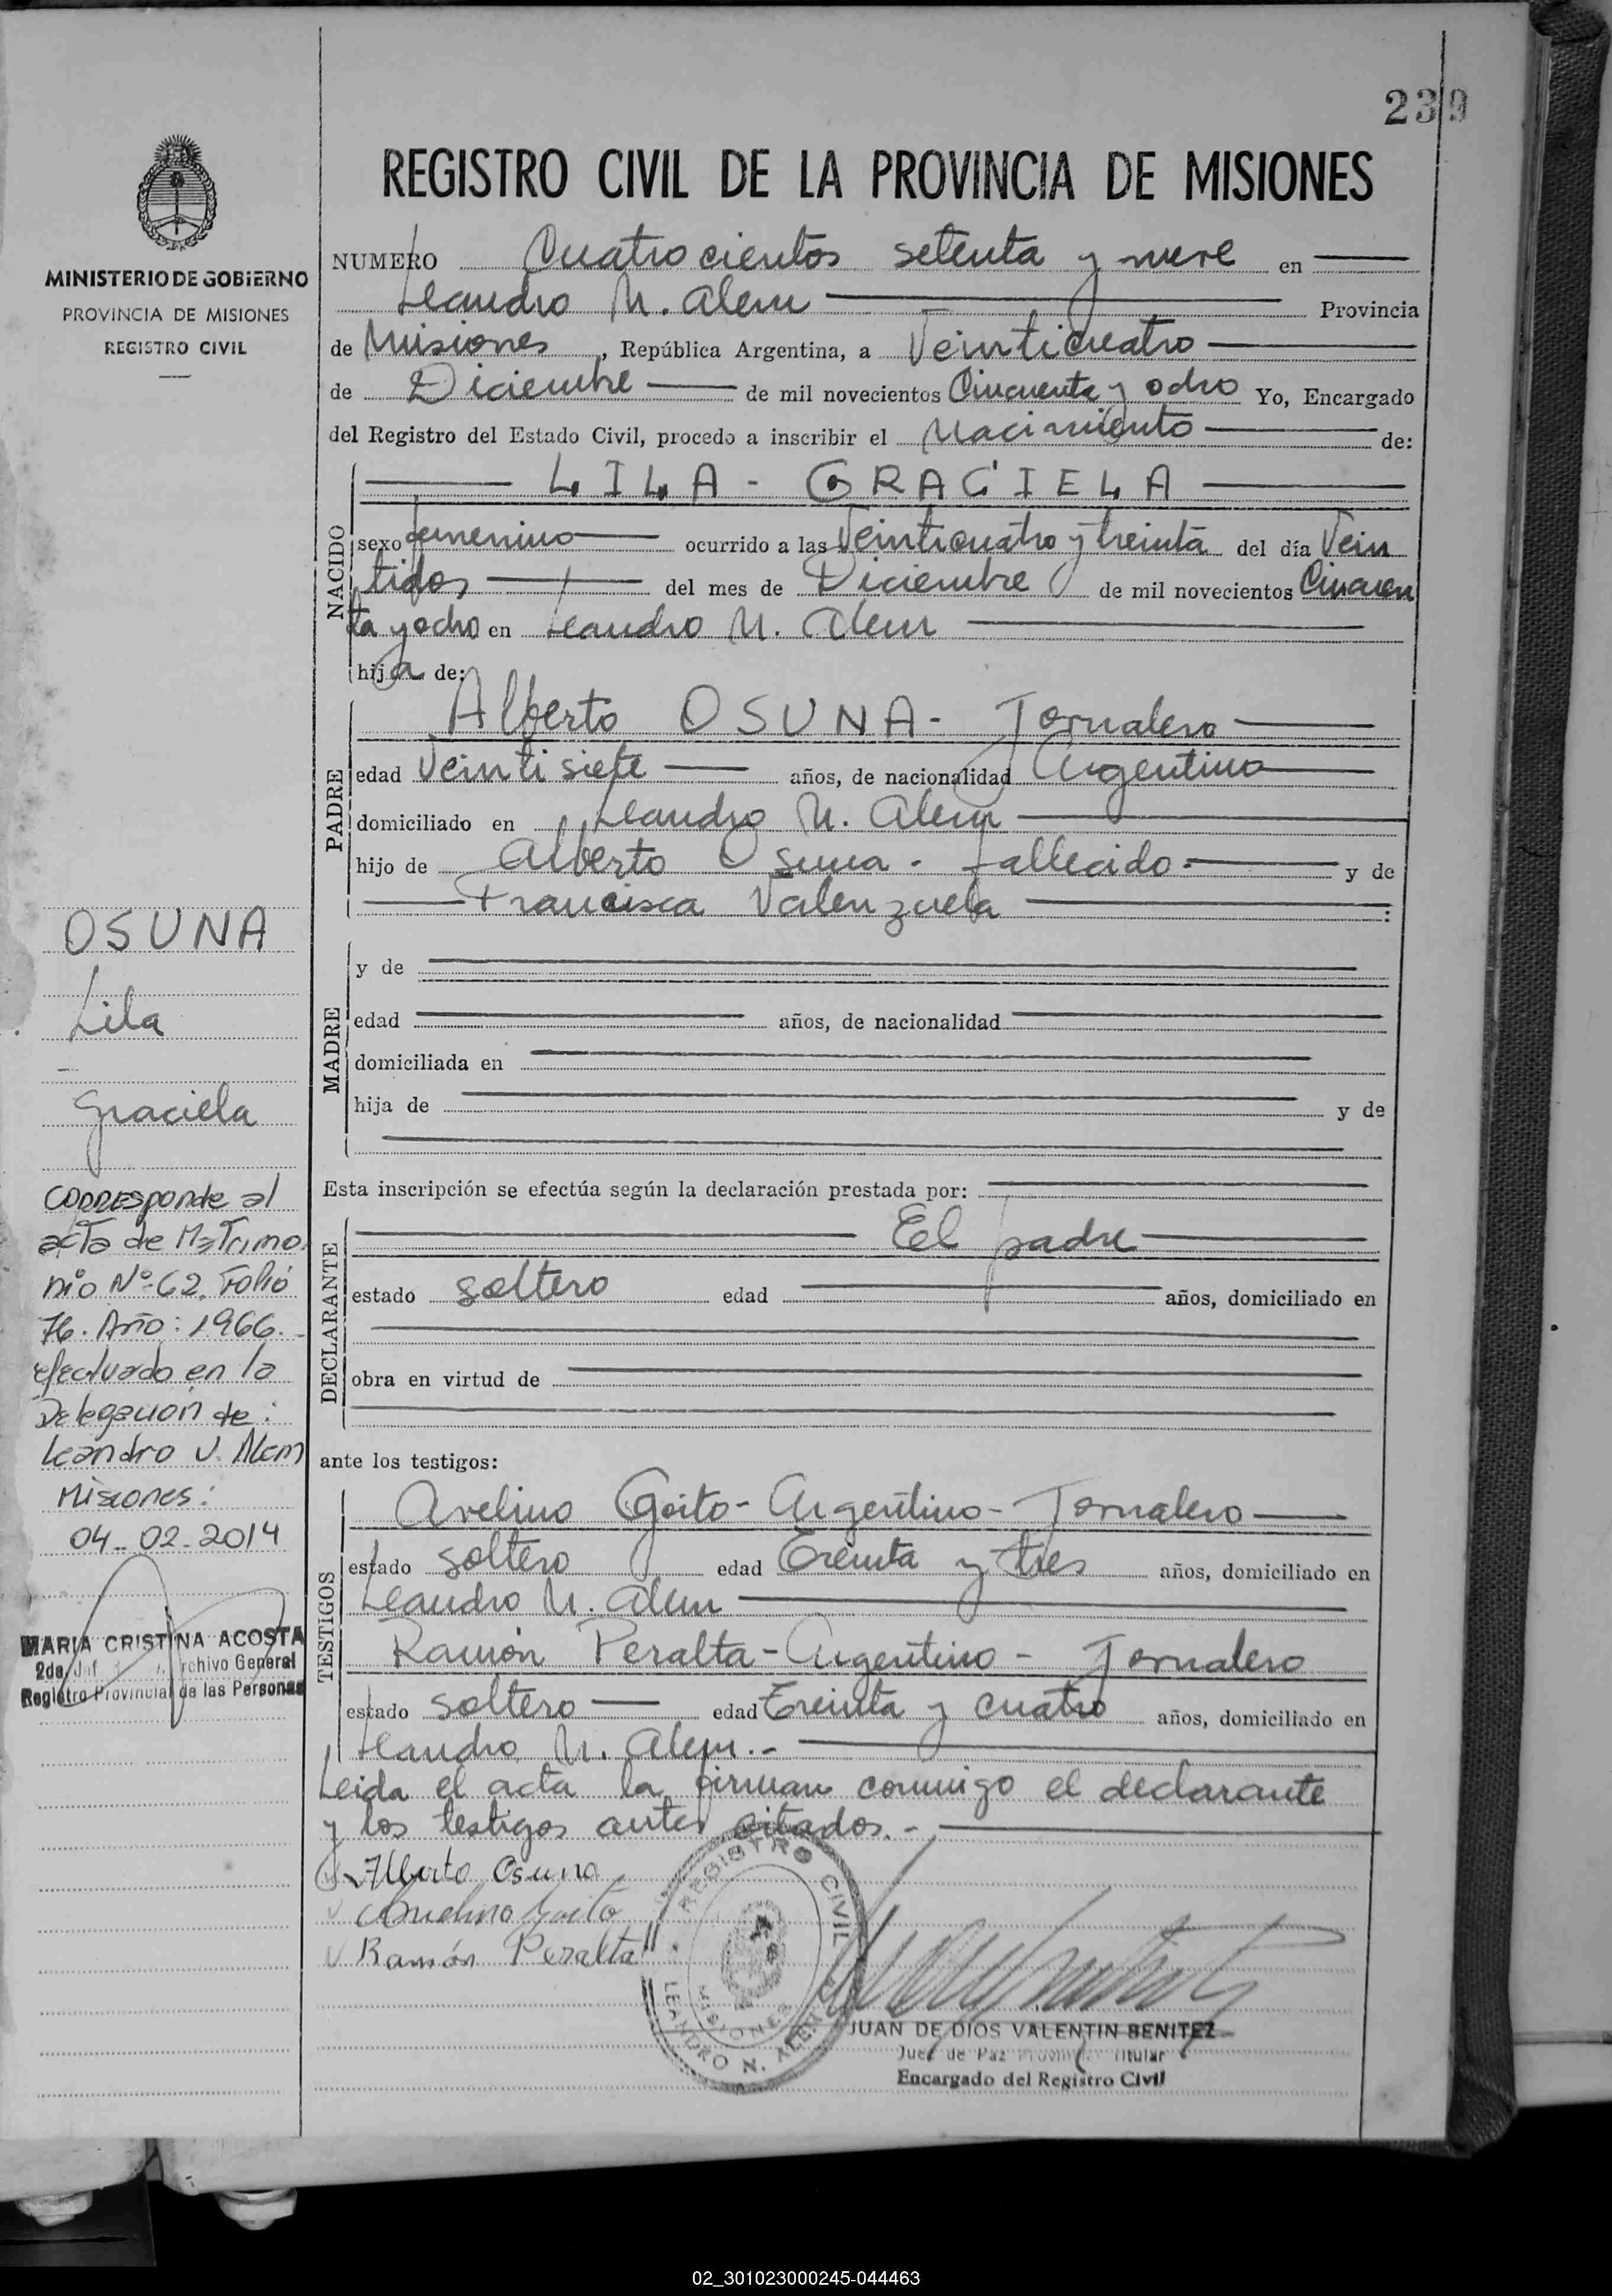 239
REGISTRO CIVIL DE LA PROVINCIA DE MISIONES
MINISTERIO DE GOBIERNO
PROVINCIA DE MISIONES
REGISTRO CIVIL
NUMERO Cuatrocientos setenta y nueve en
Leandro N. Alem Provincia
de Misiones, República Argentina, a Veinticuatro
de Diciembre de mil novecientos Cincuenta y ocho Yo, Encargado
del Registro del Estado Civil, procedo a inscribir el Nacimiento de:
NACIDO
LILA - GRACIELA
sexo femenino ocurrido a las Veinticuatro y treinta del día Vein
tidos del mes de Diciembre de mil novecientos Cincuen
ta y ocho en Leandro N. Alem
hija de:
PADRE
Alberto OSUNA - Jornalero
edad Veintisiete años, de nacionalidad Argentino
domiciliado en Leandro N. Alem
hijo de Alberto Osuna - fallecido.- y de
Francisca Valenzuela :
MADRE
y de
edad años, de nacionalidad
domiciliada en
hija de y de
Esta inscripción se efectúa según la declaración prestada por:
DECLARANTE
El padre
estado soltero edad años, domiciliado en
obra en virtud de
ante los testigos:
TESTIGOS
Avelino Goito - Argentino - Jornalero
estado soltero edad Treinta y tres años, domiciliado en
Leandro N. Alem
Ramón Peralta - Argentino - Jornalero
estado soltero edad Treinta y cuatro años, domiciliado en
Leandro N. Alem.-
Leida el acta la firman conmigo el declarante
y los testigos antes citados.-
Alberto Osuna
Avelino Goito
Ramón Peralta
REGISTRO CIVIL
MISIONES
LEANDRO N. ALEM
JUAN DE DIOS VALENTIN BENITEZ
Juez de Paz Titular
Encargado del Registro Civil
OSUNA
Lila
Graciela
Corresponde al
acta de Matrimo
nio Nº 62. Folio
76. Año: 1966.
efectuado en la
Delegacion de:
Leandro N. Alem
Misiones:
04-02-2014
MARIA CRISTINA ACOSTA
2da. Archivo General
Registro Provincial de las Personas
02_301023000245-044463